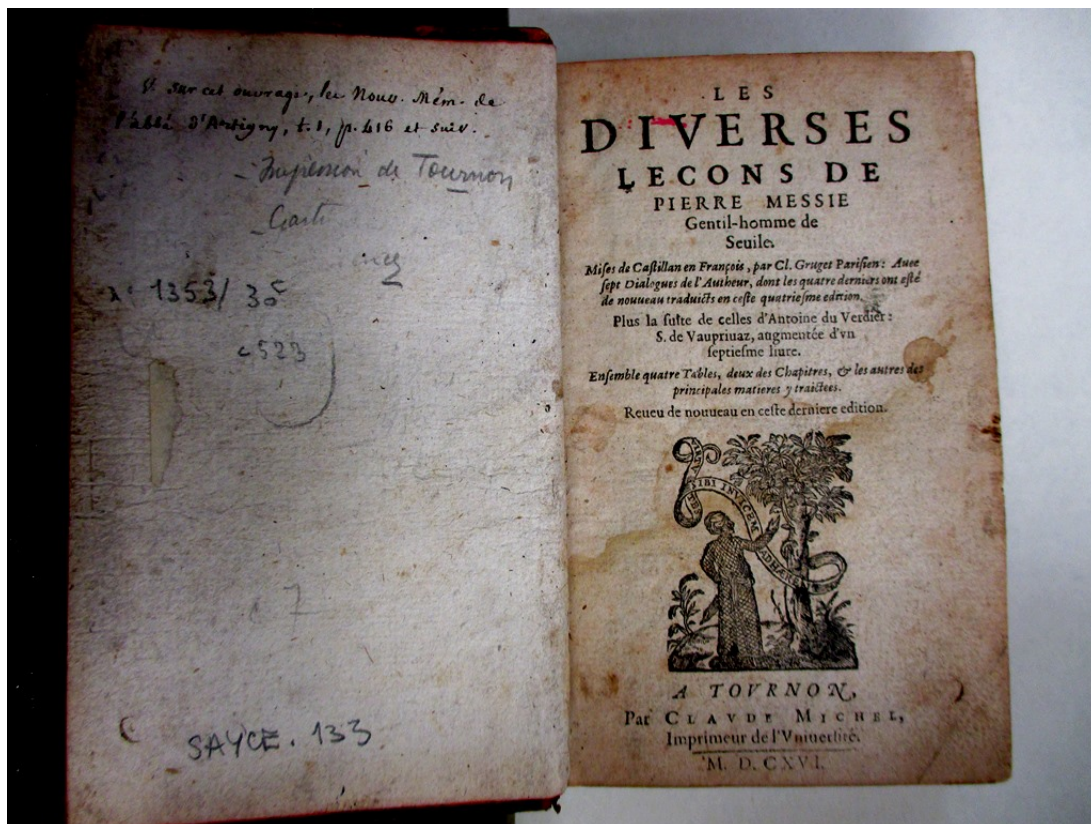 sur cet ouvrage, les Nouv. Mém. de
l'abbé d'Artigny, t. 1, p. 416 et suiv.
Impression de Tournon
1353/ 30
c523
7
SAYCE. 133
LES
DIVERSES
LECONS DE
PIERRE MESSIE
Gentil-homme de
Seuile.
Mises de Castillan en François, par Cl. Gruget Parisien: Auec
sept Dialogues de l'Autheur, dont les quatre derniers ont esté
de nouueau traduicts en ceste quatriesme edition.
Plus la suite de celles d'Antoine du Verdier:
S. de Vaupriuaz, augmentée d'vn
septiesme liure.
Ensemble quatre Tables, deux des Chapitres, & les autres des
principales matieres y traictees.
Reueu de nouueau en ceste derniere edition.
SIBI INVICEM
ADHÆRE
A TOVRNON,
Par CLAVDE MICHEL,
Imprimeur de l'Vniuersité.
M. D. CXVI.